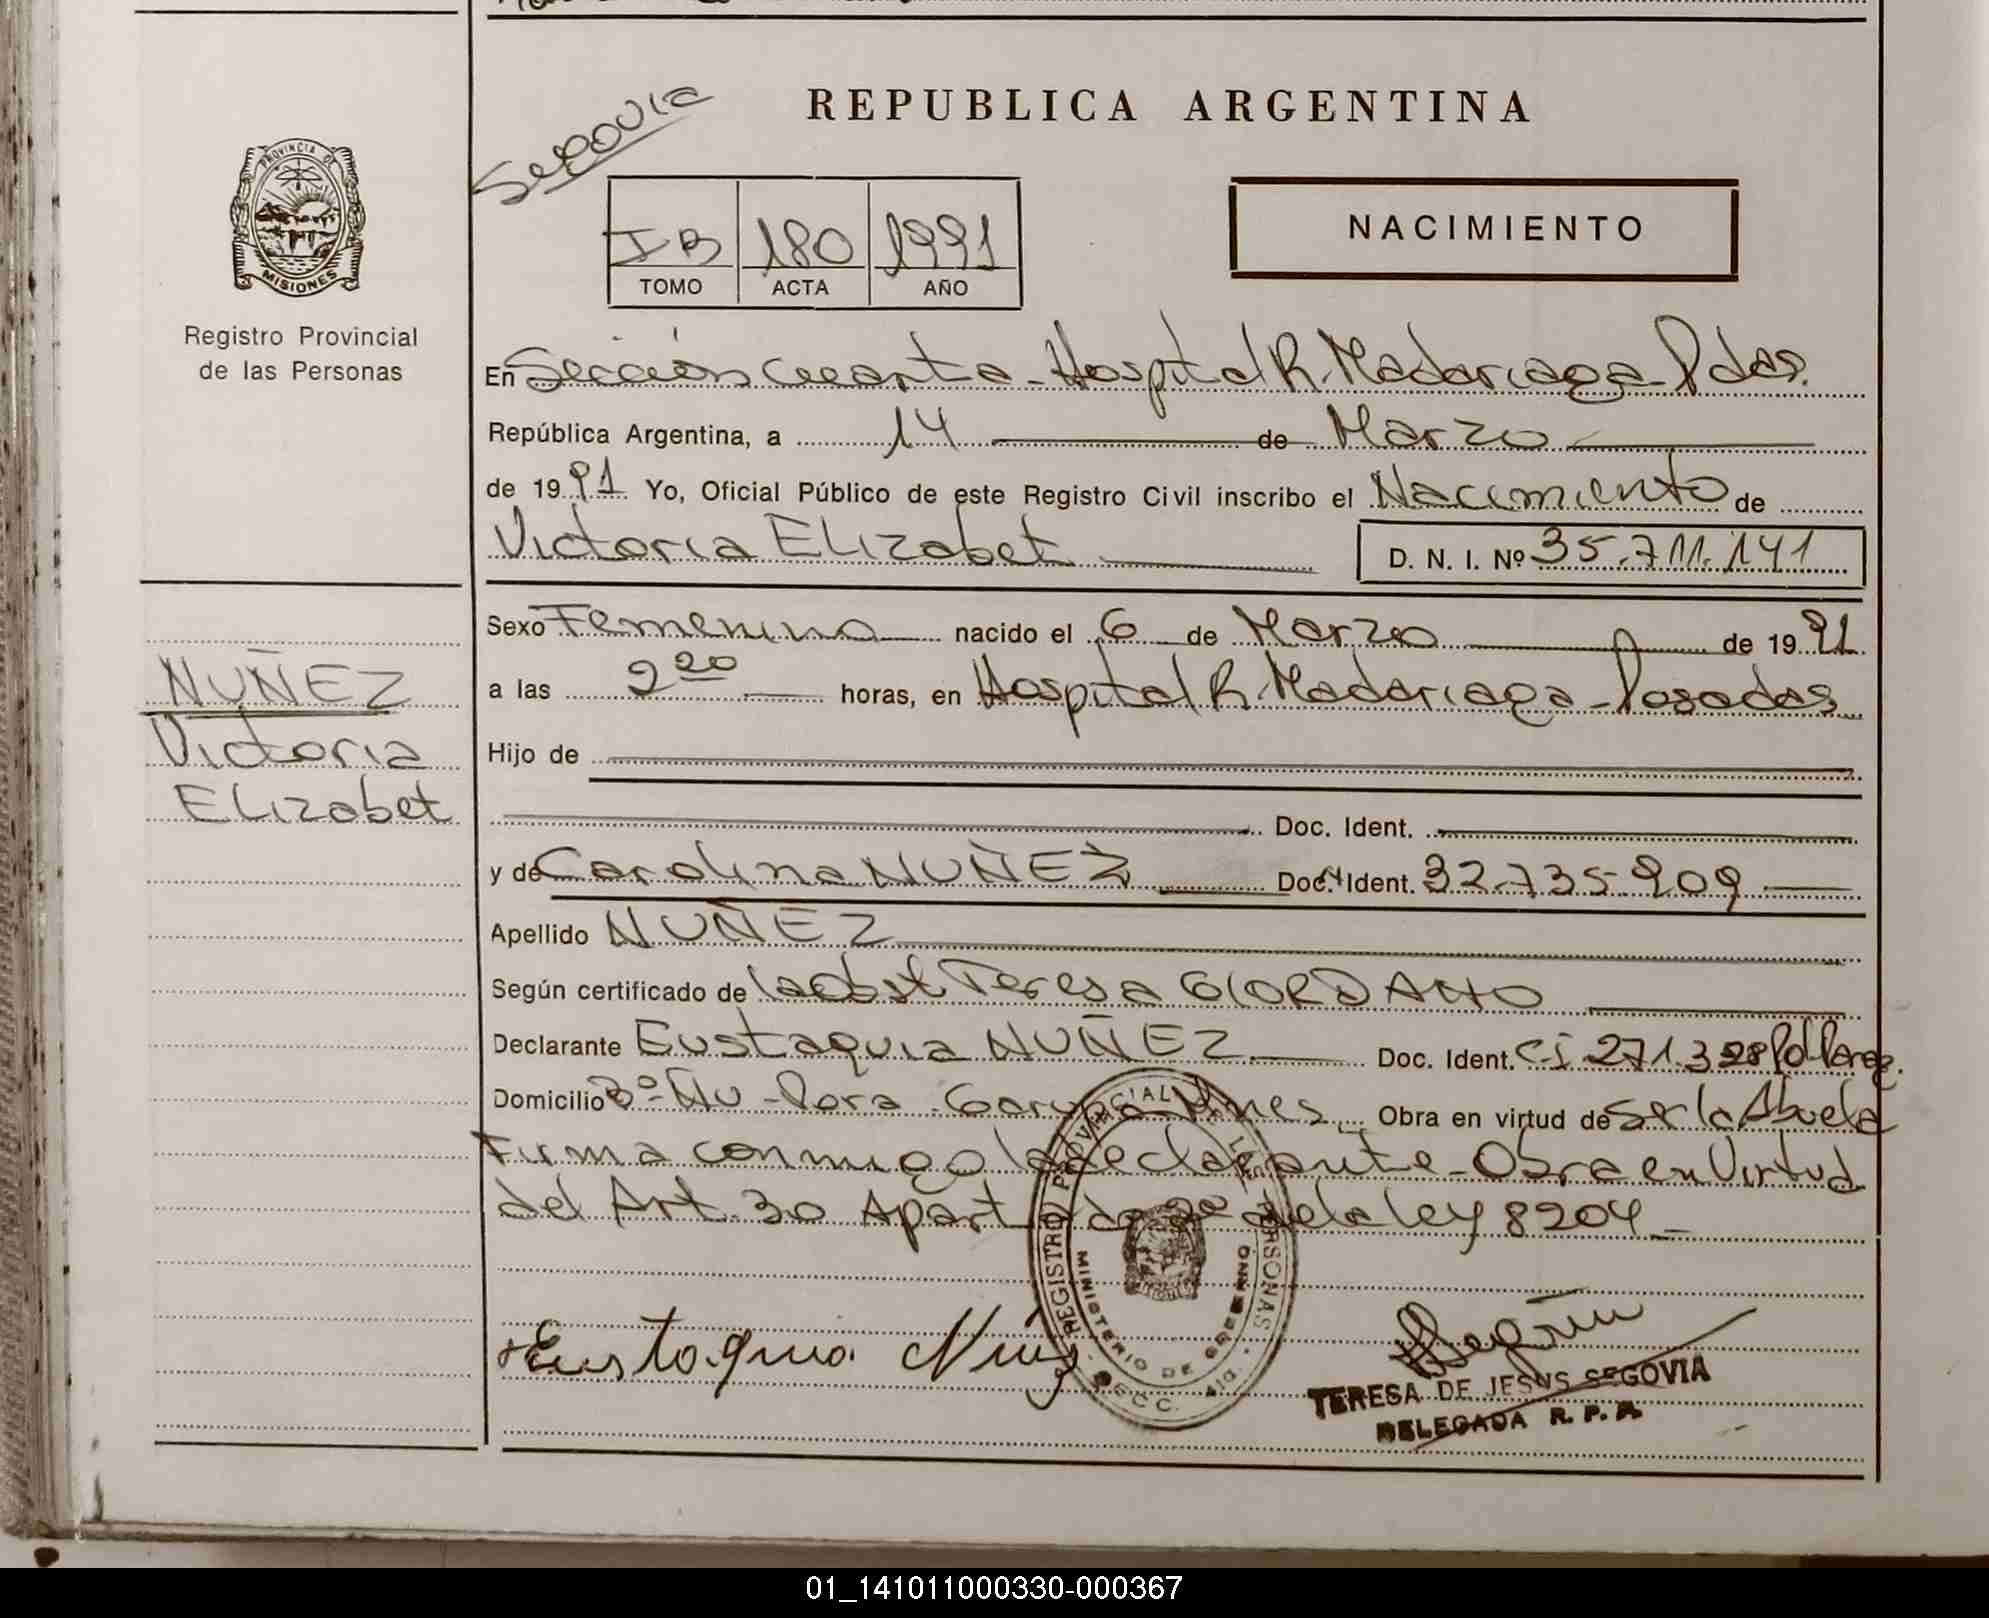 REPUBLICA ARGENTINA
Segovia
PROVINCIA DE
MISIONES
Registro Provincial
de las Personas
IB 180 1991
TOMO ACTA AÑO
NACIMIENTO
En Sección Cuarta - Hospital R. Madariaga - Pdas.
República Argentina, a 14 de Marzo
de 1991 Yo, Oficial Público de este Registro Civil inscribo el Nacimiento de
Victoria Elizabet D. N. I. Nº 35.711.141
Sexo Femenino nacido el 6 de Marzo de 1991
a las 2 20 horas, en Hospital R. Madariaga - Posadas
Hijo de
Doc. Ident.
y de Carolina NUÑEZ Doc. Ident. 32.735.909
Apellido NUÑEZ
Según certificado de la Obst Teresa GIORDANO
Declarante Eustaquia NUÑEZ Doc. Ident. C.I 271.328 Pol Parag.
Domicilio Bº Ñu - Pora - Garupa Mnes Obra en virtud de Ser la Abuela
Firma conmigo la declarante - Obra en Virtud
del Art. 30 Apartado 2º de la ley 8204 -
NUÑEZ
Victoria
Elizabet
Eustaquia Nuñez
REGISTRO PROVINCIAL DE LAS PERSONAS
MINISTERIO DE GOBIERNO
TERESA DE JESUS SEGOVIA
DELEGADA R. P. P.
01_141011000330-000367